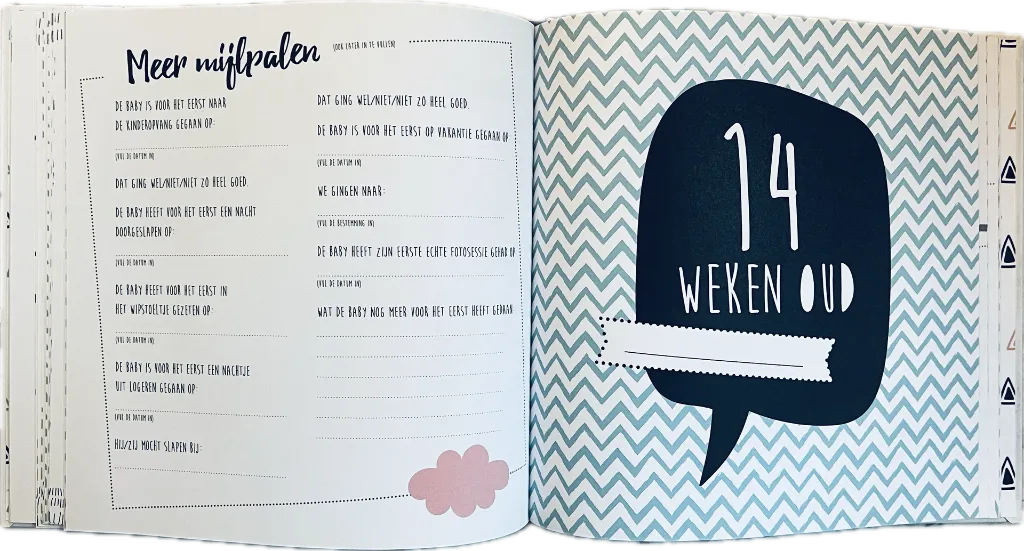 Meer mijlpalen
(OOK LATER IN TE VULLEN)
DE BABY IS VOOR HET EERST NAAR
DE KINDEROPVANG GEGAAN OP:
(VUL DE DATUM IN)
DAT GING WEL/NIET/NIET ZO HEEL GOED.
DE BABY HEEFT VOOR HET EERST EEN NACHT
DOORGESLAPEN OP:
(VUL DE DATUM IN)
DE BABY HEEFT VOOR HET EERST IN
HET WIPSTOELTJE GEZETEN OP:
(VUL DE DATUM IN)
DE BABY IS VOOR HET EERST EEN NACHTJE
UIT LOGEREN GEGAAN OP:
(VUL DE DATUM IN)
HIJ/ZIJ MOCHT SLAPEN BIJ:
DAT GING WEL/NIET/NIET ZO HEEL GOED.
DE BABY IS VOOR HET EERST OP VAKANTIE GEGAAN OP
(VUL DE DATUM IN)
WE GINGEN NAAR:
(VUL DE BESTEMMING IN)
DE BABY HEEFT ZIJN EERSTE ECHTE FOTOSESSIE GEHAD OP
(VUL DE DATUM IN)
WAT DE BABY NOG MEER VOOR HET EERST HEEFT GEDAAN
14
WEKEN OUD